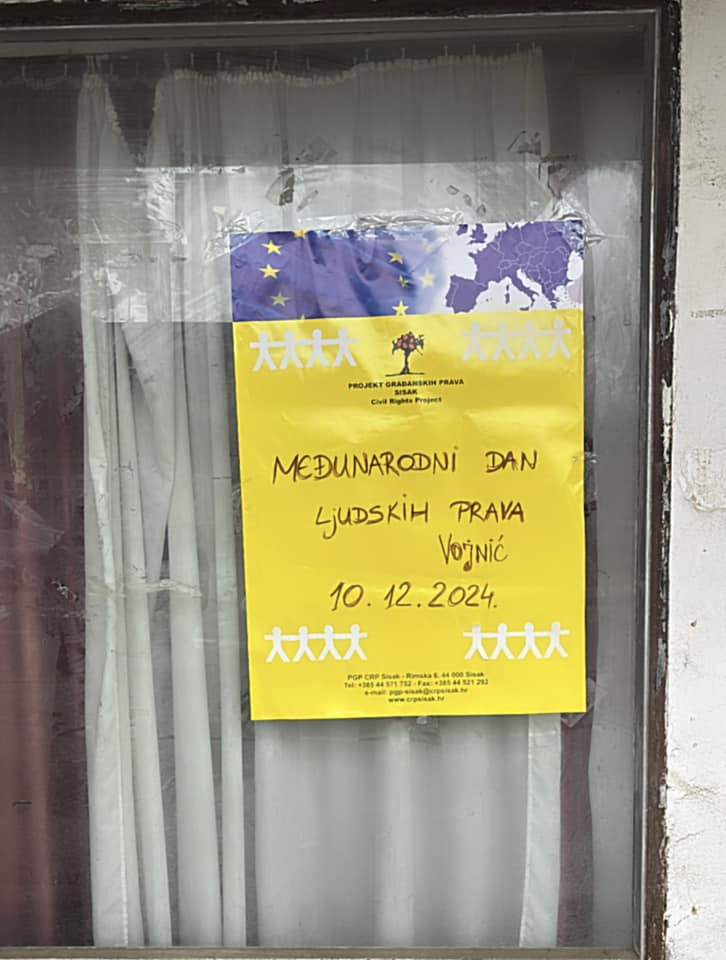 PROJEKT GRAĐANSKIH PRAVA
SISAK
Civil Rights Project
MEĐUNARODNI DAN
LJUDSKIH PRAVA
VOJNIĆ
10.12.2024.
PGP CRP Sisak - Rimska 6, 44 000 Sisak
Tel: +385 44 571 752 - Fax: +385 44 521 292
e-mail: pgp-sisak@crpsisak.hr
www.crpsisak.hr